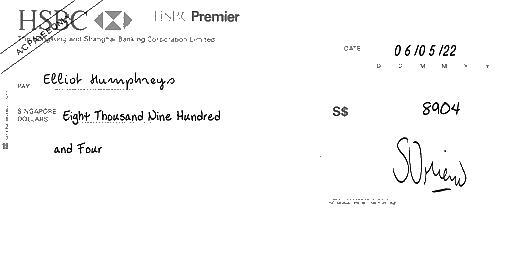 HSBC HSBC Premier
The Hongkong and Shanghai Banking Corporation Limited
A/C PAYEE ONLY
DATE 06/05/22
D D M M Y Y
PAY Elliot Humphreys
SINGAPORE DOLLARS Eight Thousand Nine Hundred and Four
S$ 8904